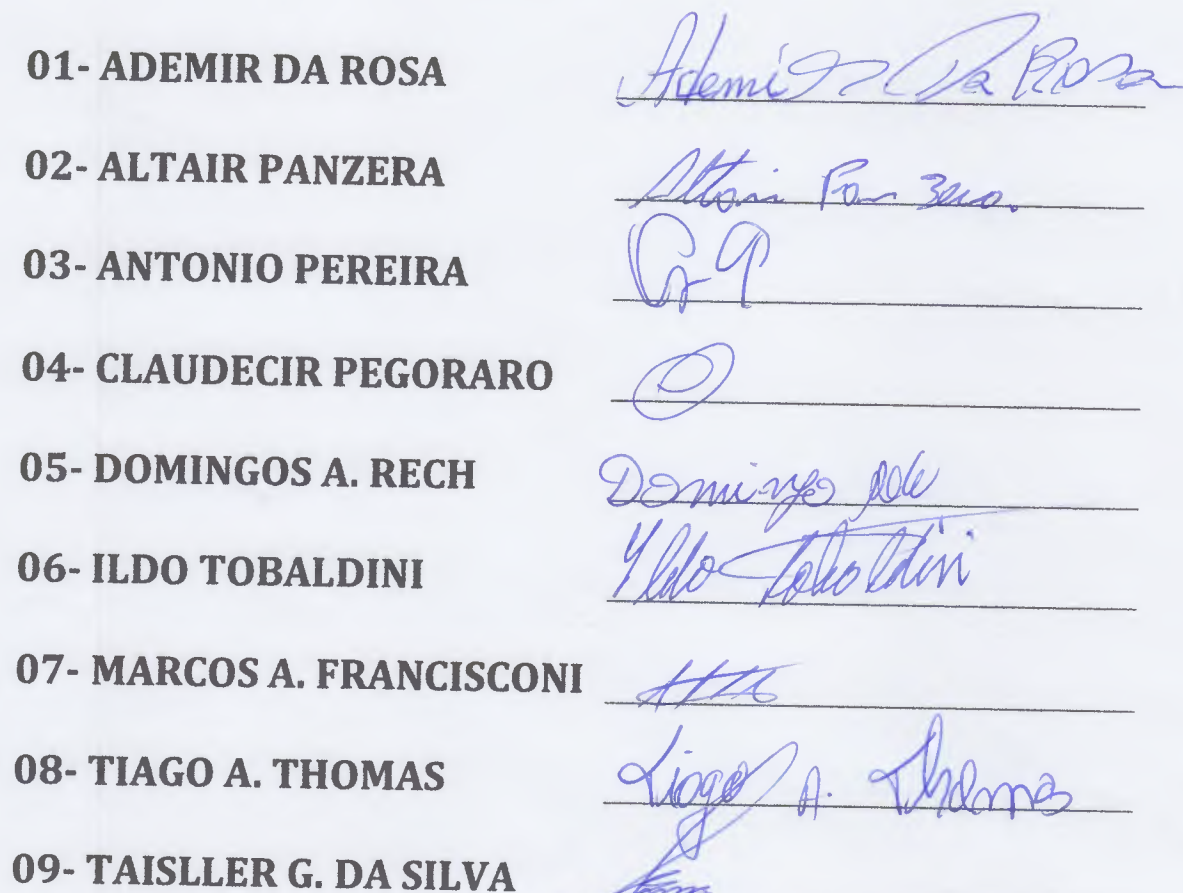 01- ADEMIR DA ROSA Ademir Da Rosa
02- ALTAIR PANZERA Altair Panzera.
03- ANTONIO PEREIRA
04- CLAUDECIR PEGORARO
05- DOMINGOS A. RECH Domingo
06- ILDO TOBALDINI Yldo Tobaldini
07- MARCOS A. FRANCISCONI
08- TIAGO A. THOMAS Tiago A. Thomas
09- TAISLLER G. DA SILVA